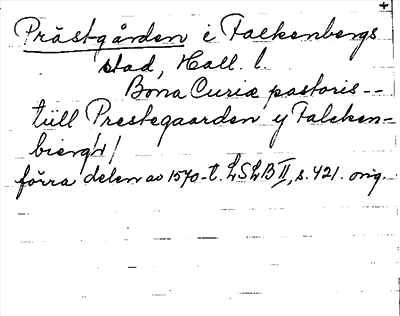 Prästgården i Falkenbergs
stad, Hall. l.
Bona Curiæ pastoris --
tüll Prestegaarden y Falcken-
biergh/
förra delen av 1570-t. LSLB II, s. 421. orig.